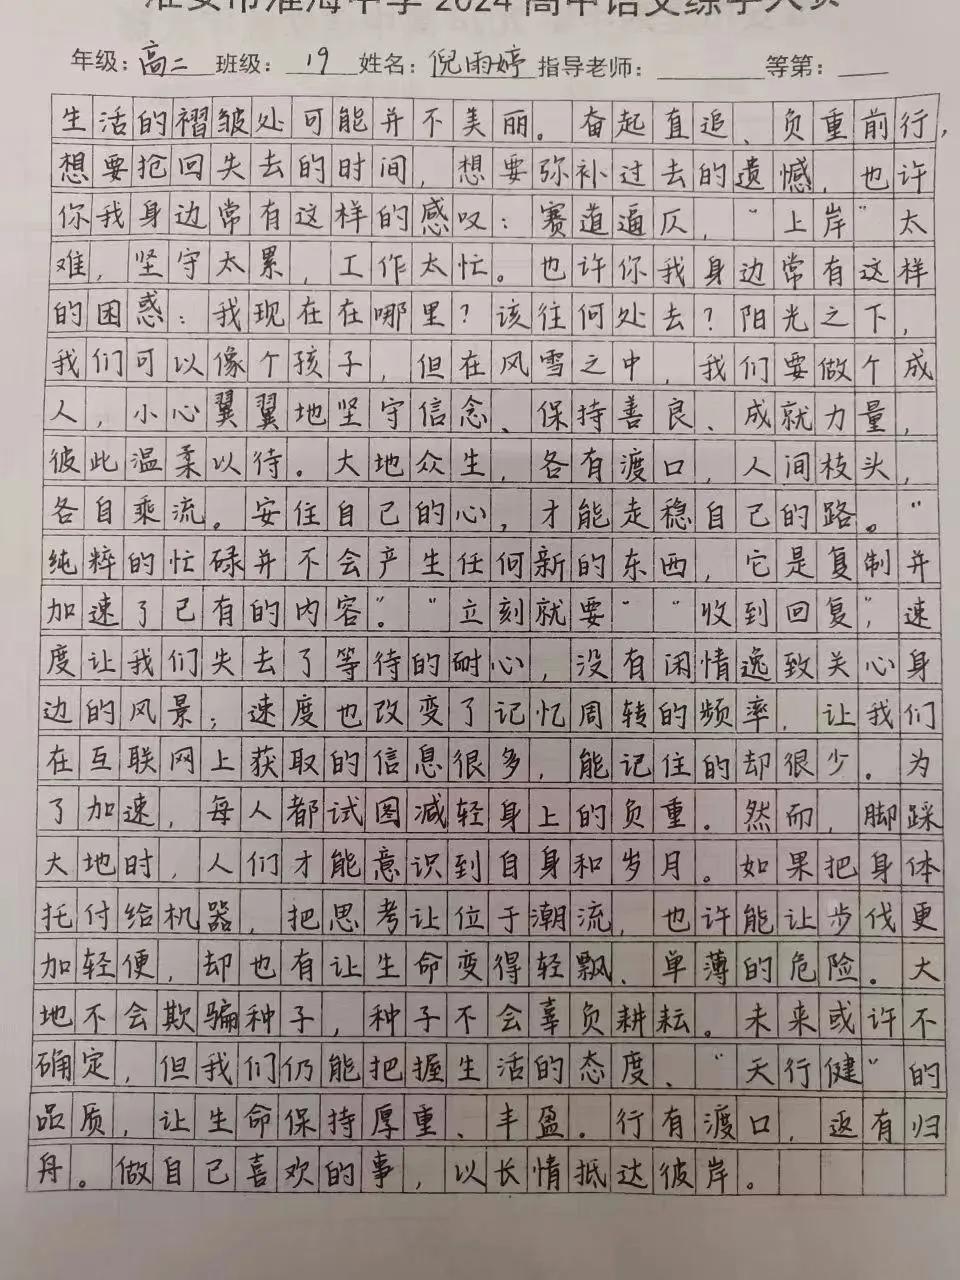 淮安市淮海中学2024高中语文练字大赛
年级：高二 班级：19 姓名：倪雨婷 指导老师： 等第：
生活的褶皱处可能并不美丽。奋起直追、负重前行，
想要抢回失去的时间，想要弥补过去的遗憾，也许
你我身边常有这样的感叹：赛道逼仄，“上岸”太
难，坚守太累，工作太忙。也许你我身边常有这样
的困惑：我现在在哪里？该往何处去？阳光之下，
我们可以像个孩子，但在风雪之中，我们要做个成
人，小心翼翼地坚守信念、保持善良、成就力量，
彼此温柔以待。大地众生，各有渡口，人间枝头，
各自乘流。安住自己的心，才能走稳自己的路。“
纯粹的忙碌并不会产生任何新的东西，它是复制并
加速了已有的内容”。“立刻就要”“收到回复”，速
度让我们失去了等待的耐心，没有闲情逸致关心身
边的风景；速度也改变了记忆周转的频率，让我们
在互联网上获取的信息很多，能记住的却很少。为
了加速，每人都试图减轻身上的负重。然而，脚踩
大地时，人们才能意识到自身和岁月。如果把身体
托付给机器，把思考让位于潮流，也许能让步伐更
加轻便，却也有让生命变得轻飘、单薄的危险。大
地不会欺骗种子，种子不会辜负耕耘。未来或许不
确定，但我们仍能把握生活的态度、“天行健”的
品质，让生命保持厚重、丰盈。行有渡口，返有归
舟。做自己喜欢的事，以长情抵达彼岸。